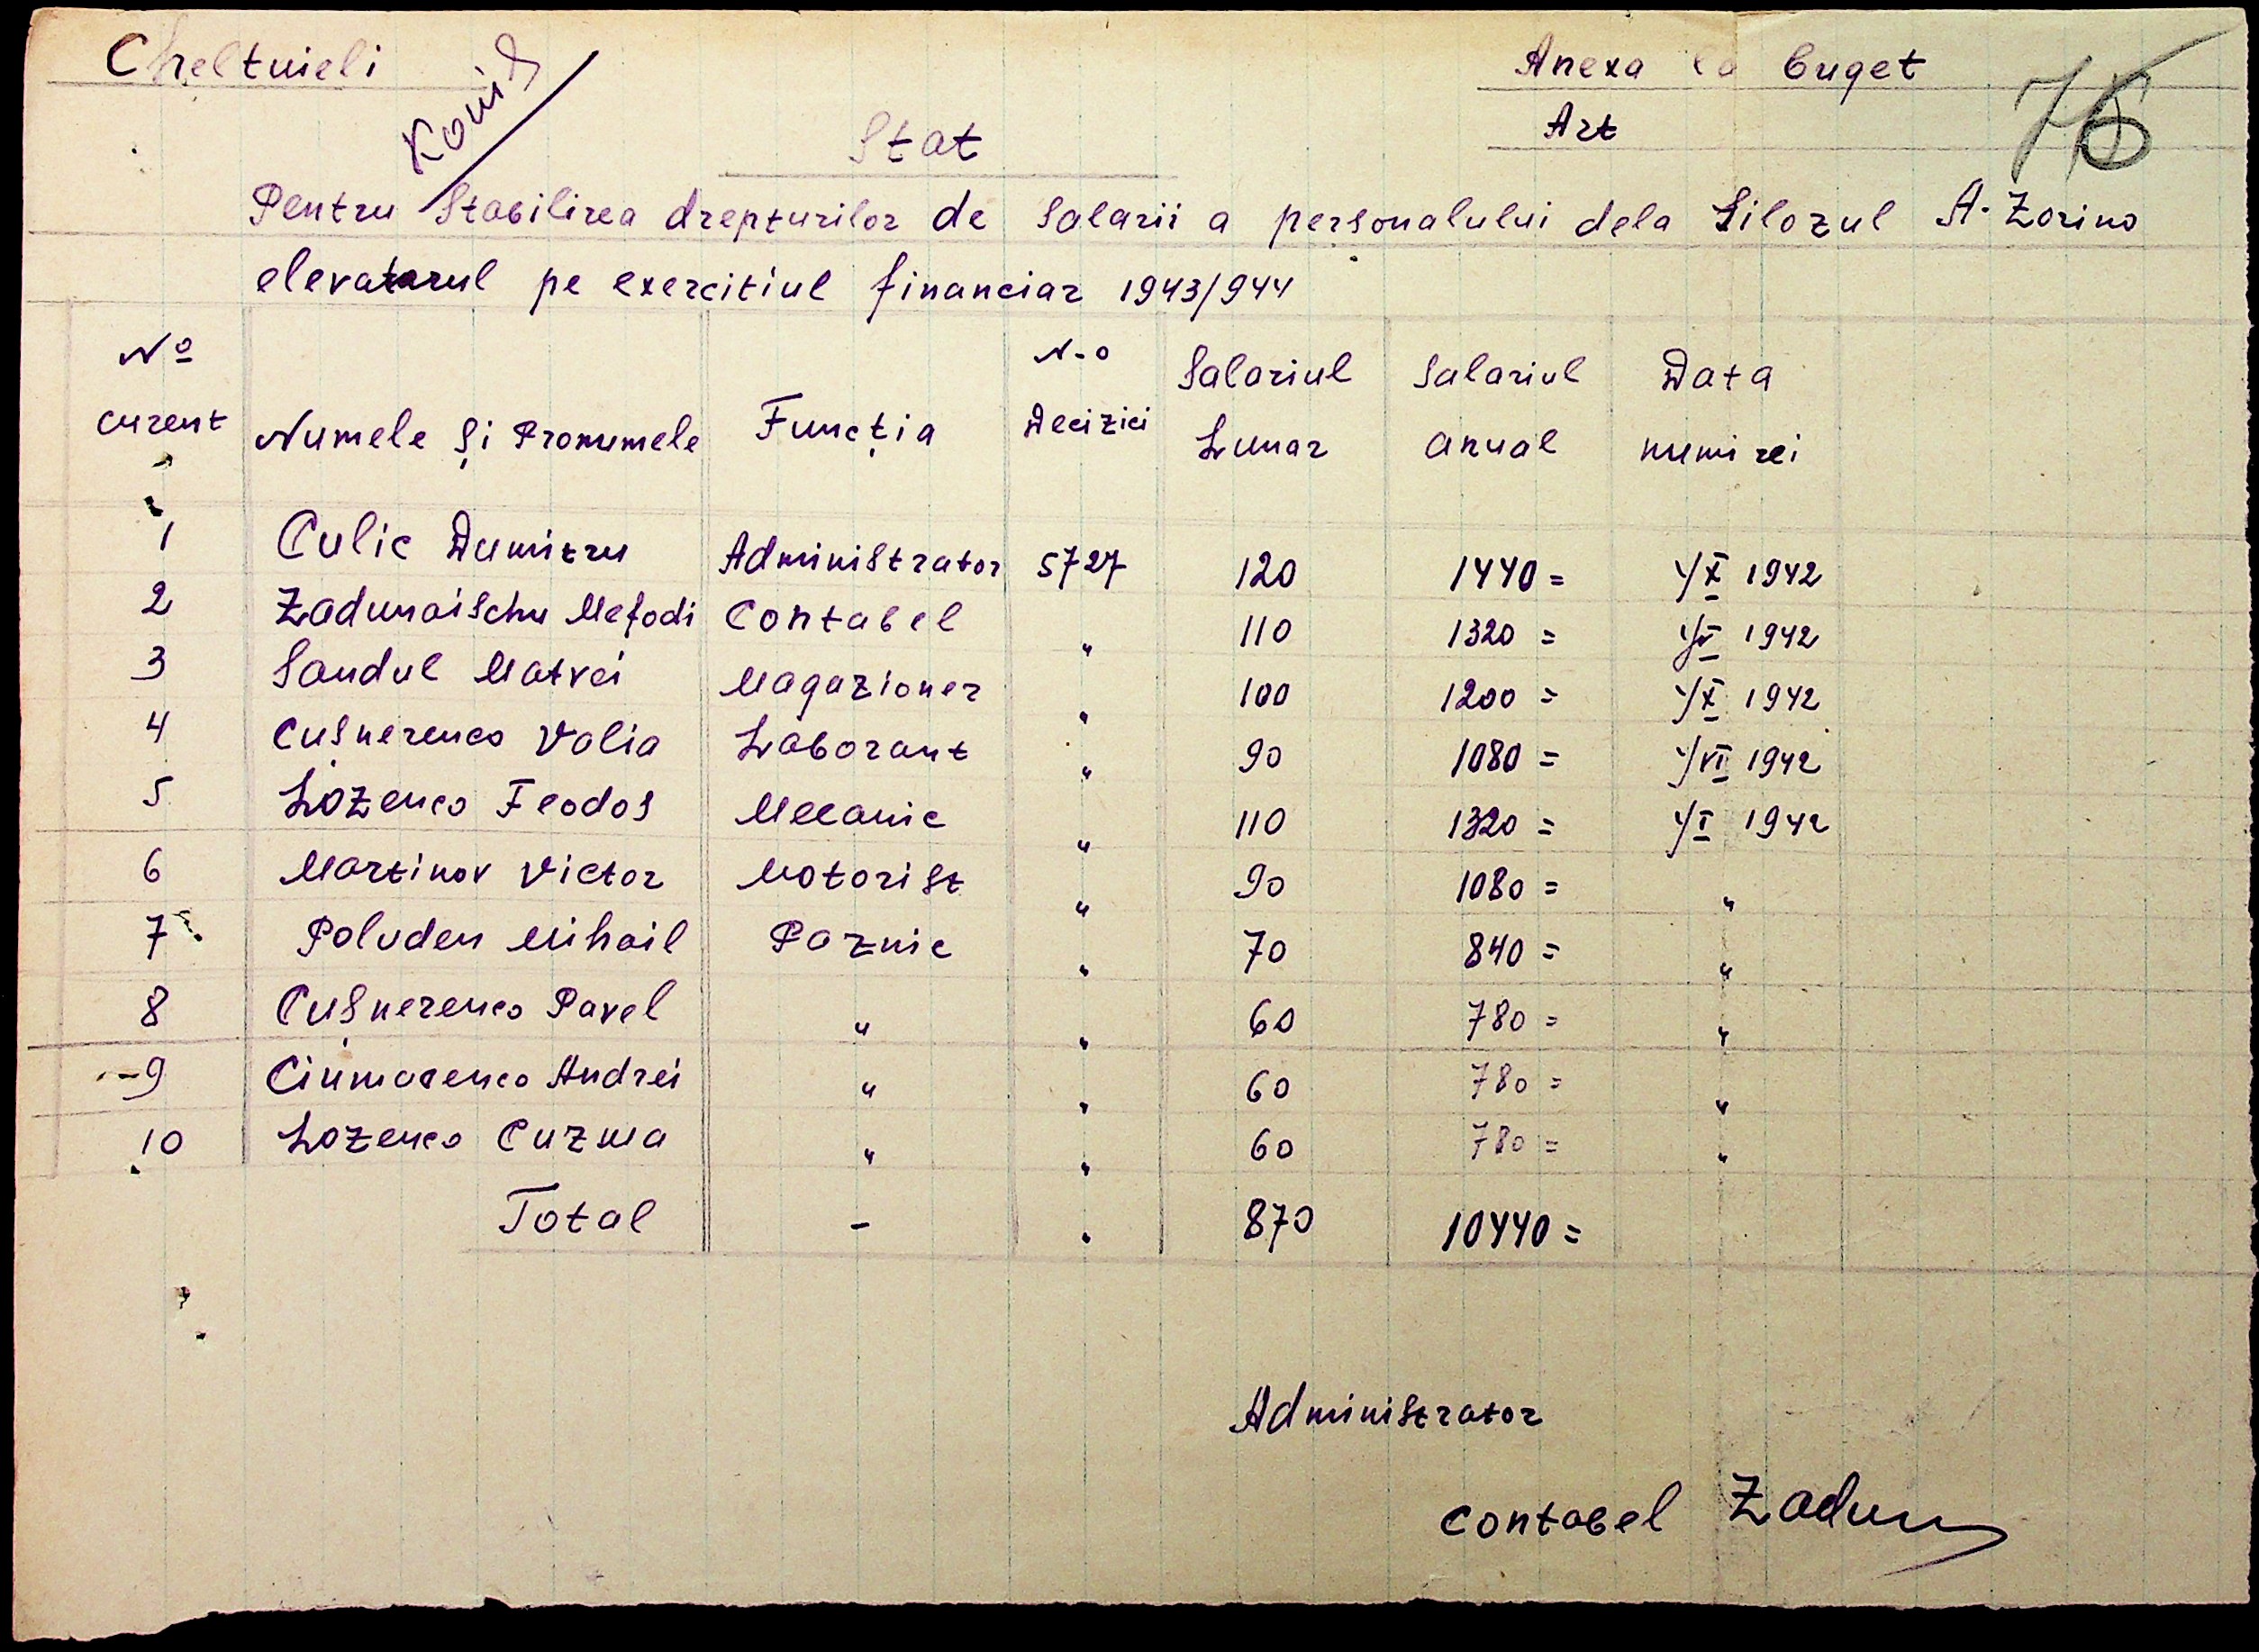 Cheltuieli
Anexa la buget
76
Art
Stat
Pentru Stabilirea drepturilor de Salarii a personalului dela Silozul A. Zorino
elevatorul pe exercitiul financiar 1943/944
No curent Numele și Pronumele Funcția N-o Deciziei Salariul Lunar Salariul anual Data numirei
1 Culic Dumitru Administrator 5727 120 1440= 1/X 1942
2 Zadunaischu Mefodi Contabel " 110 1320= 1/V 1942
3 Sandul Matvei Magazioner " 100 1200= 1/X 1942
4 Cușnerenco Valia Laborant " 90 1080= 1/VI 1942
5 Lozenco Feodos Mecanic " 110 1320= 1/I 1942
6 Martinov Victor Motorist " 90 1080= "
7 Poluden Mihail Paznic " 70 840= "
8 Cușnerenco Pavel " " 60 780= "
9 Ciumacenco Andrei " " 60 780= "
10 Lozenco Cuzma " " 60 780= "
Total - " 870 10440=
Administrator
Contabel Zadun